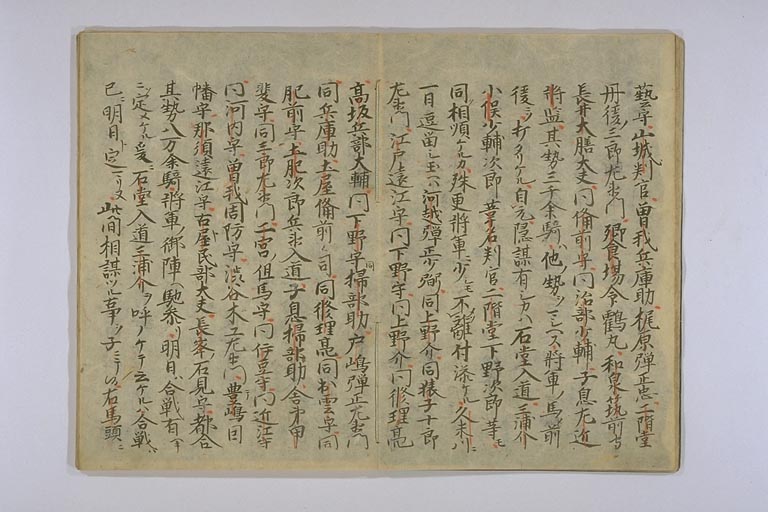 藝守山城判官曽我兵庫助梶原弾正忠二階堂
丹後三郎左衛門饗食場令鶴丸和泉筑前守
長井大膳大夫同備前守同治部少輔子息左近
将監其勢三千余騎ハ他ノ勢ヲマシヘス将軍ノ馬前
後ニ打タリケル自元隠謀有シカハ石堂入道三浦介
小俣少輔次郎葦名判官二階堂下野次郎
同相順ケルカ殊更将軍ニ少シモ不離付添ケル久米川ニ
一日逗留シ玉ヘハ河越弾正少弼同上野介同猿子十郎
左衛門江戸遠江守同下野守同上野介同修理亮
高坂兵部大輔同下野守掃部助戸嶋弾正左衛門
同兵庫助土屋備前々司同修理亮同出雲守同
肥前守土肥次郎兵衛入道子息掃部助舎弟甲
斐守同三郎左衛門二宮但馬守同伊豆守同近江守
同河内守曽我周防守渋谷木工左衛門豊嶋因
幡守那須遠江守古屋民部大夫長峯石見守都合
其勢八万余騎将軍ノ御陣ヘ馳参ル明日合戦有
ト定メケル夜石堂入道三浦介ヲ呼ノケテ云ケルハ合戦ハ
已ニ明日ト定ラレタリ此間相謀ツル事ヲ子ニテ候右馬頭ニ